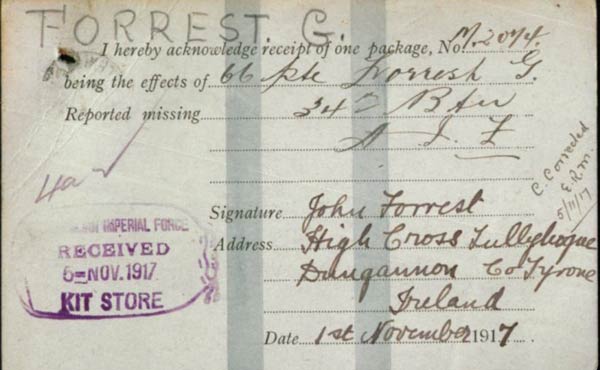 FORREST. G.
I hereby acknowledge receipt of one package, No. M.2074.
being the effects of 66 Pte Forrest G.
Reported missing 34th Battn
A I F
4a
C. Corrected
E.R.M.
5/11/17
Signature John Forrest
Address High Cross Tullyhogue
Dungannon Co Tyrone
Ireland
Date 1st November 1917
IMPERIAL FORCE
RECEIVED
5=NOV.1917
KIT STORE